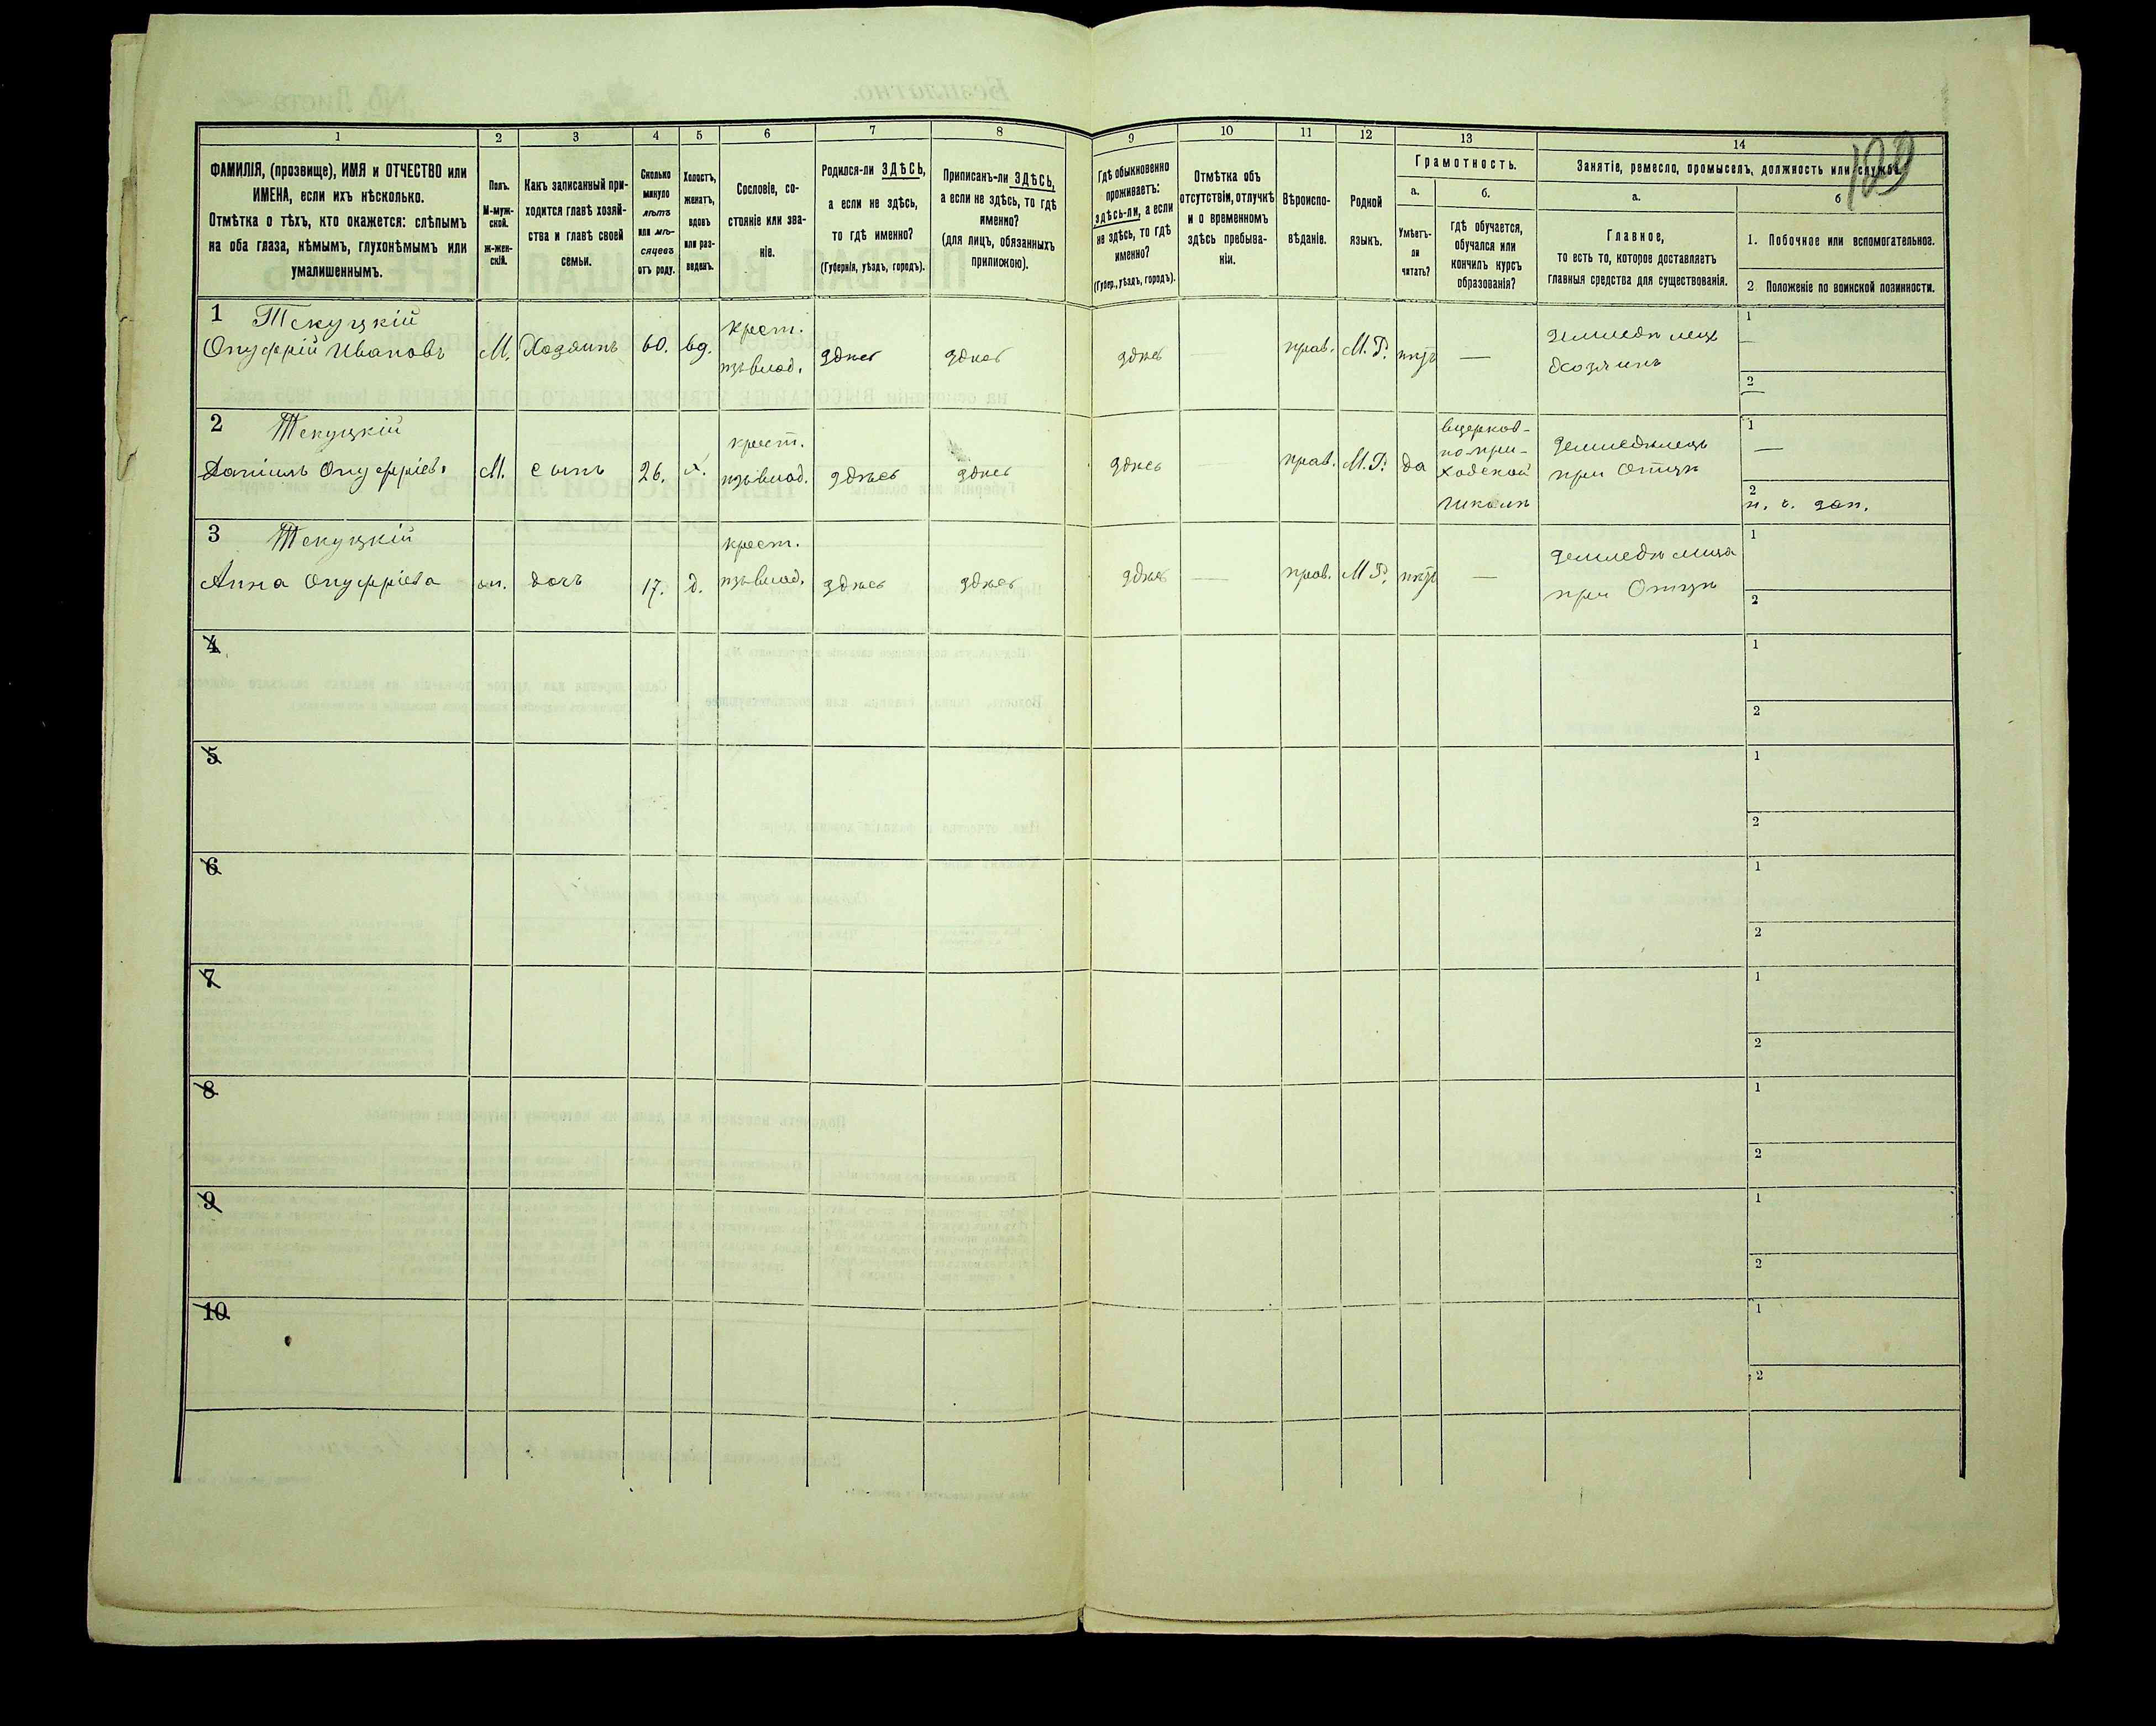 123
1
2
3
4
5
6
7
8
9
10
11
12
13
14
ФАМИЛІЯ, (прозвище), ИМЯ и ОТЧЕСТВО или
ИМЕНА, если ихъ нѣсколько.
Отмѣтка о тѣхъ, кто окажется: слѣпымъ
на оба глаза, нѣмымъ, глухонѣмымъ или
умалишеннымъ.
Полъ.
М-муж-
ской.
ж-жен-
скій.
Какъ записанный при-
ходится главѣ хозяй-
ства и главѣ своей
семьи.
Сколько
минуло
лѣтъ
или мѣ-
сяцевъ
отъ роду.
Холостъ,
женатъ,
вдовъ
или раз-
веденъ.
Сословіе, со-
стояніе или зва-
ніе.
Родился-ли ЗДѢСЬ,
а если не здѣсь,
то гдѣ именно?
(Губернія, уѣздъ, городъ).
Приписанъ-ли ЗДѢСЬ,
а если не здѣсь, то гдѣ
именно?
(для лицъ, обязанныхъ
припискою).
Гдѣ обыкновенно
проживаетъ:
здѣсь-ли, а если
не здѣсь, то гдѣ
именно?
(Губер., уѣздъ, городъ).
Отмѣтка объ
отсутствіи, отлучкѣ
и о временномъ
здѣсь пребыва-
ніи.
Вѣроиспо-
вѣданіе.
Родной
языкъ.
Грамотность.
а.
Умѣетъ-
ли
читать?
б.
гдѣ обучается,
обучался или
кончилъ курсъ
образованія?
Занятіе, ремесло, промыселъ, должность или служба.
а.
Главное,
то есть то, которое доставляетъ
главныя средства для существованія.
б
1. Побочное или вспомогательное.
2 Положеніе по воинской повинности.
1 Текуцкій
Онуфрій Ивановъ
М.
Хозяинъ
60.
вд.
крест.
изъ влад.
здѣсь
здѣсь
здѣсь
—
прав.
М. Р.
нѣтъ
—
Земледѣлецъ
Хозяинъ
1
—
2
—
2 Текуцкій
Даніилъ Онуфріев.
М.
сынъ
26.
х.
крест.
изъ влад.
здѣсь
здѣсь
здѣсь
—
прав.
М. Р.
да
в церков-
но-при-
ходской
школѣ
Земледѣлецъ
при Отцѣ
1
—
2
н. ч. зап.
3 Текуцкій
Анна Онуфріева
ж.
дочь
17.
д.
крест.
изъ влад.
здѣсь
здѣсь
здѣсь
—
прав.
М Р.
нѣтъ
—
Земледѣлица
при Отцѣ
1
2
4
1
2
5
1
2
6
1
2
7
1
2
8
1
2
9
1
2
10
1
2